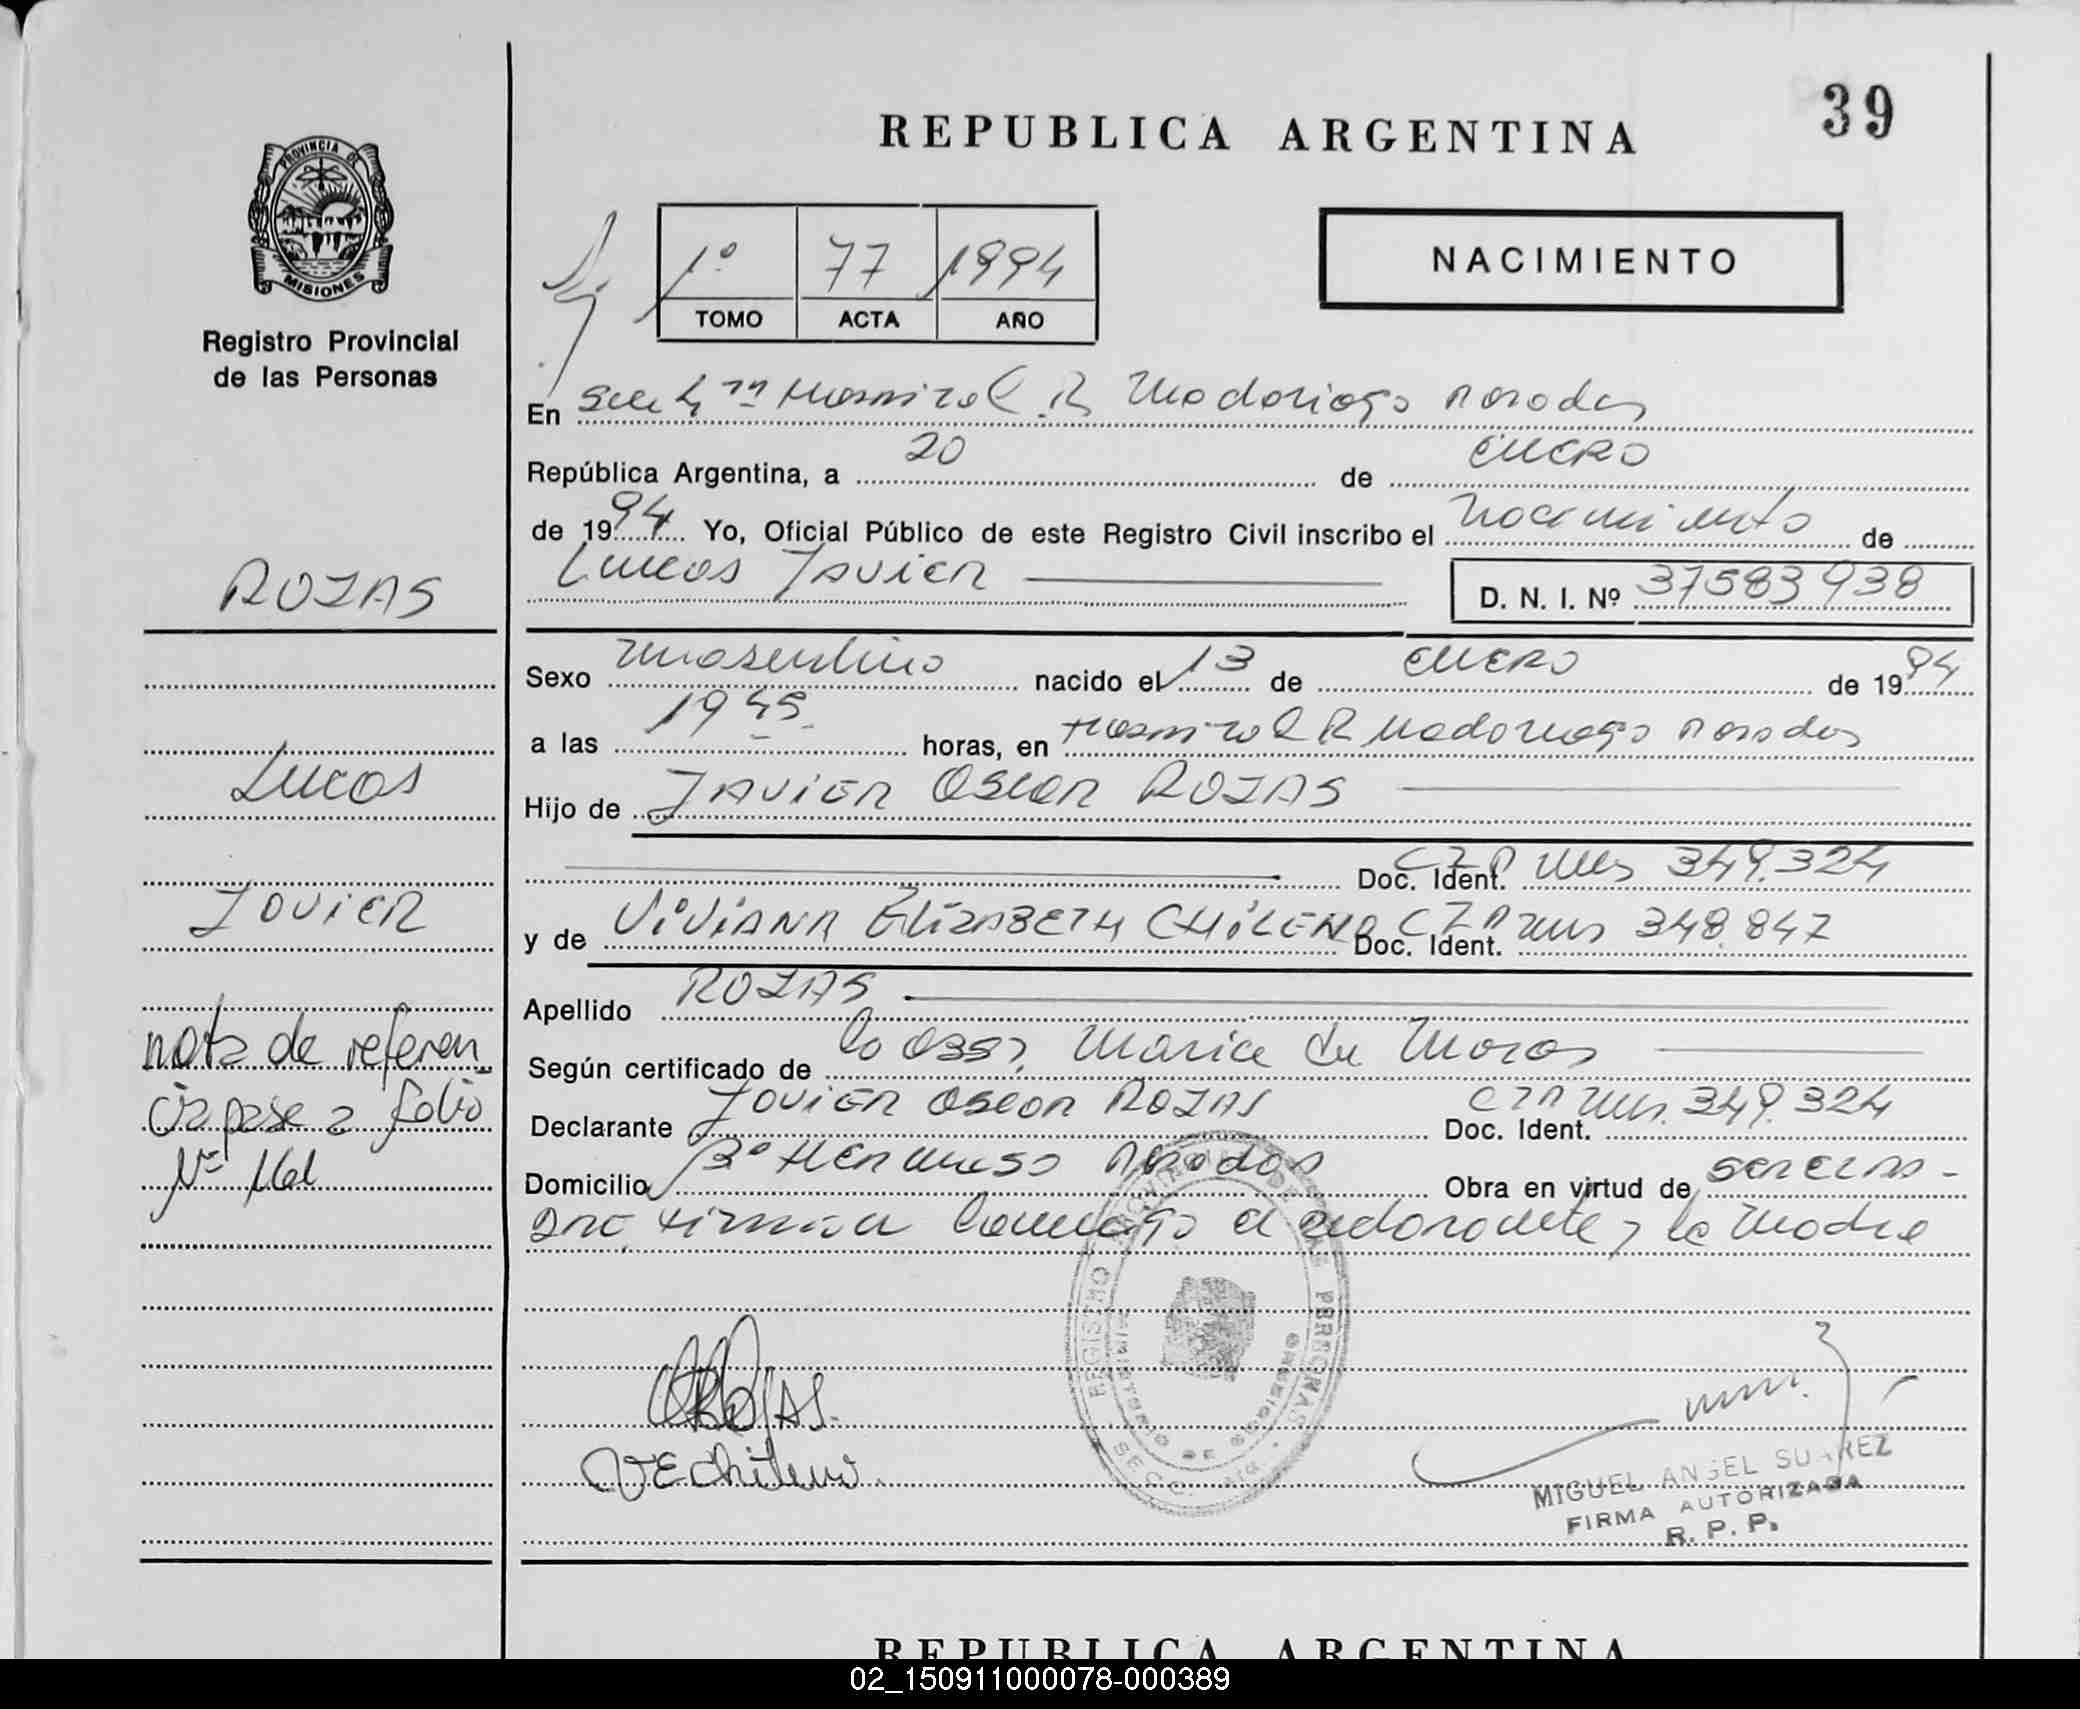 39
REPUBLICA ARGENTINA
PROVINCIA DE
MISIONES
Registro Provincial
de las Personas
1º 77 1994
TOMO ACTA AÑO
NACIMIENTO
En Hospital R Madariaga Posadas
República Argentina, a 20 de enero
de 1994 Yo, Oficial Público de este Registro Civil inscribo el nacimiento de
ROJAS
Lucas Javier
D. N. I. Nº 37583938
Sexo masculino nacido el 13 de enero de 1994
a las 1945 horas, en Hospital R Madariaga Posadas
Lucas
Hijo de Javier Oscar ROJAS
Doc. Ident. Mns 349.324
Javier
y de Viviana Elizabeth CHILENO Doc. Ident. Mns 348.847
Apellido ROJAS
nota de referen
Según certificado de la Obst. Maria de
cia pase a folio
Declarante Javier Oscar ROJAS Doc. Ident. Mns. 349.324
Nº 161
Domicilio Posadas Obra en virtud de
firman conmigo el declarante y la madre
REGISTRO PROVINCIAL DE LAS PERSONAS
MINISTERIO DE GOBIERNO
SECC.
ROJAS.
VEChileno.
MIGUEL ANGEL SUAREZ
FIRMA AUTORIZADA
R. P. P.
REPUBLICA ARGENTINA
02_150911000078-000389